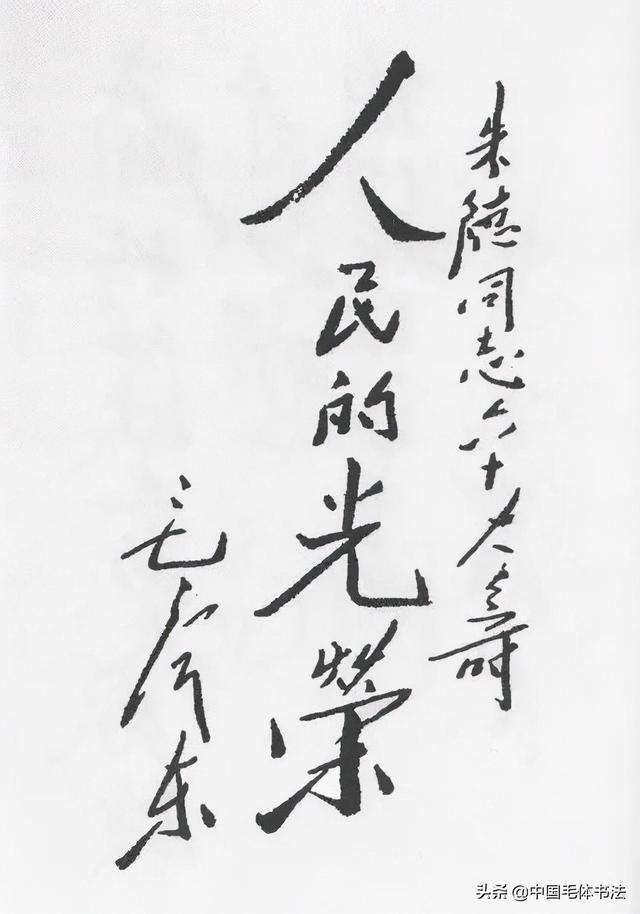 朱德同志六十大寿
人民的光榮
毛泽东
头条 @中国毛体书法